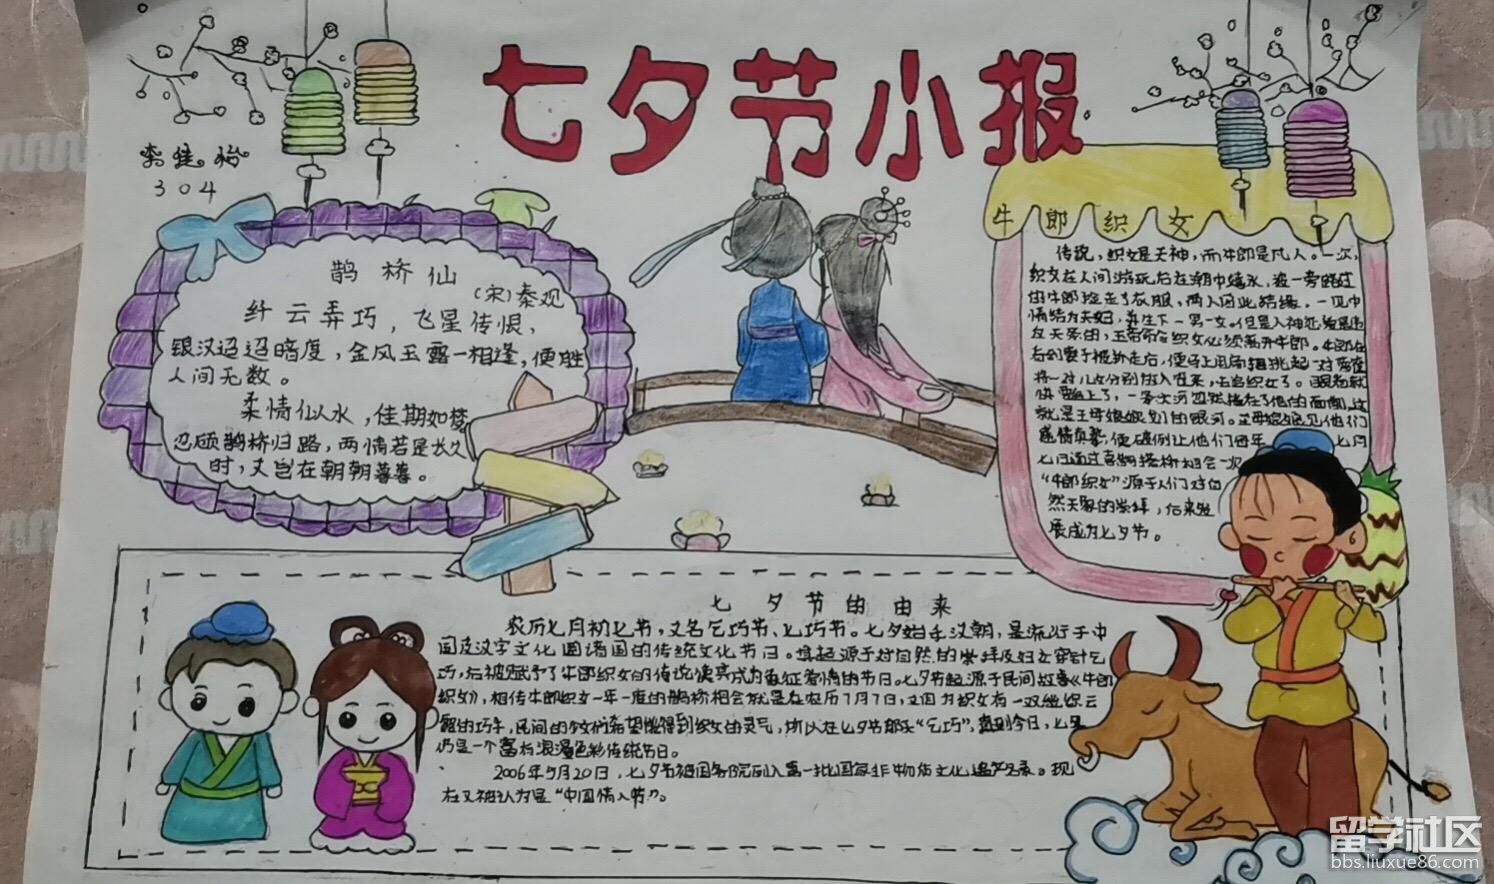 七夕节小报
李佳怡
304
鹊桥仙
(宋)秦观
纤云弄巧，飞星传恨，
银汉迢迢暗度，金风玉露一相逢，便胜
人间无数。
柔情似水，佳期如梦
忍顾鹊桥归路，两情若是长久
时，又岂在朝朝暮暮。
牛郎织女
传说，织女是天神，而牛郎是凡人。一次，
织女在人间游玩后在湖中嬉水，被一旁路过
的牛郎捡走了衣服，两人因此结缘。一见中
情结为夫妇，并生下一男一女。但是人神
左天条的，玉帝命织女必须离开牛郎。牛郎在
右到妻子抓走后，便马上用扁担挑起一对箩筐
将一对儿女分别放入筐来，去追织女了。眼看就
快追上了，一条大河忽然横在了他的面前，这
就是王母娘娘划的银河。王母娘娘见他们
感情真挚，便破例让他们每年七月
七日通过喜鹊搭桥相会一次
“牛郎织女”源于人们对自
然天象的崇拜，后来发
展成为七夕节。
七夕节的由来
农历七月初七节，又名乞巧节、七巧节。七夕始于汉朝，是流行于中
国及汉字文化圈诸国的传统文化节日。其起源于对自然的崇拜及妇女穿针乞
巧，后被赋予了牛郎织女的传说使其成为象征爱情的节日。七夕节起源于民间故事《牛郎
织女》，相传牛郎织女一年一度的鹊桥相会就是在农历7月7日，又因为织女有一双能织云
的巧手，民间的少女们希望能得到织女的灵气，所以在七夕节那天“乞巧”，直到今日，七夕
仍是一个富有浪漫色彩传统节日。
2006年5月20日，七夕节被国务院列入第一批国家非物质文化遗产名录。现
在又被认为是“中国情人节”。
留学社区
bbs.liuxue86.com